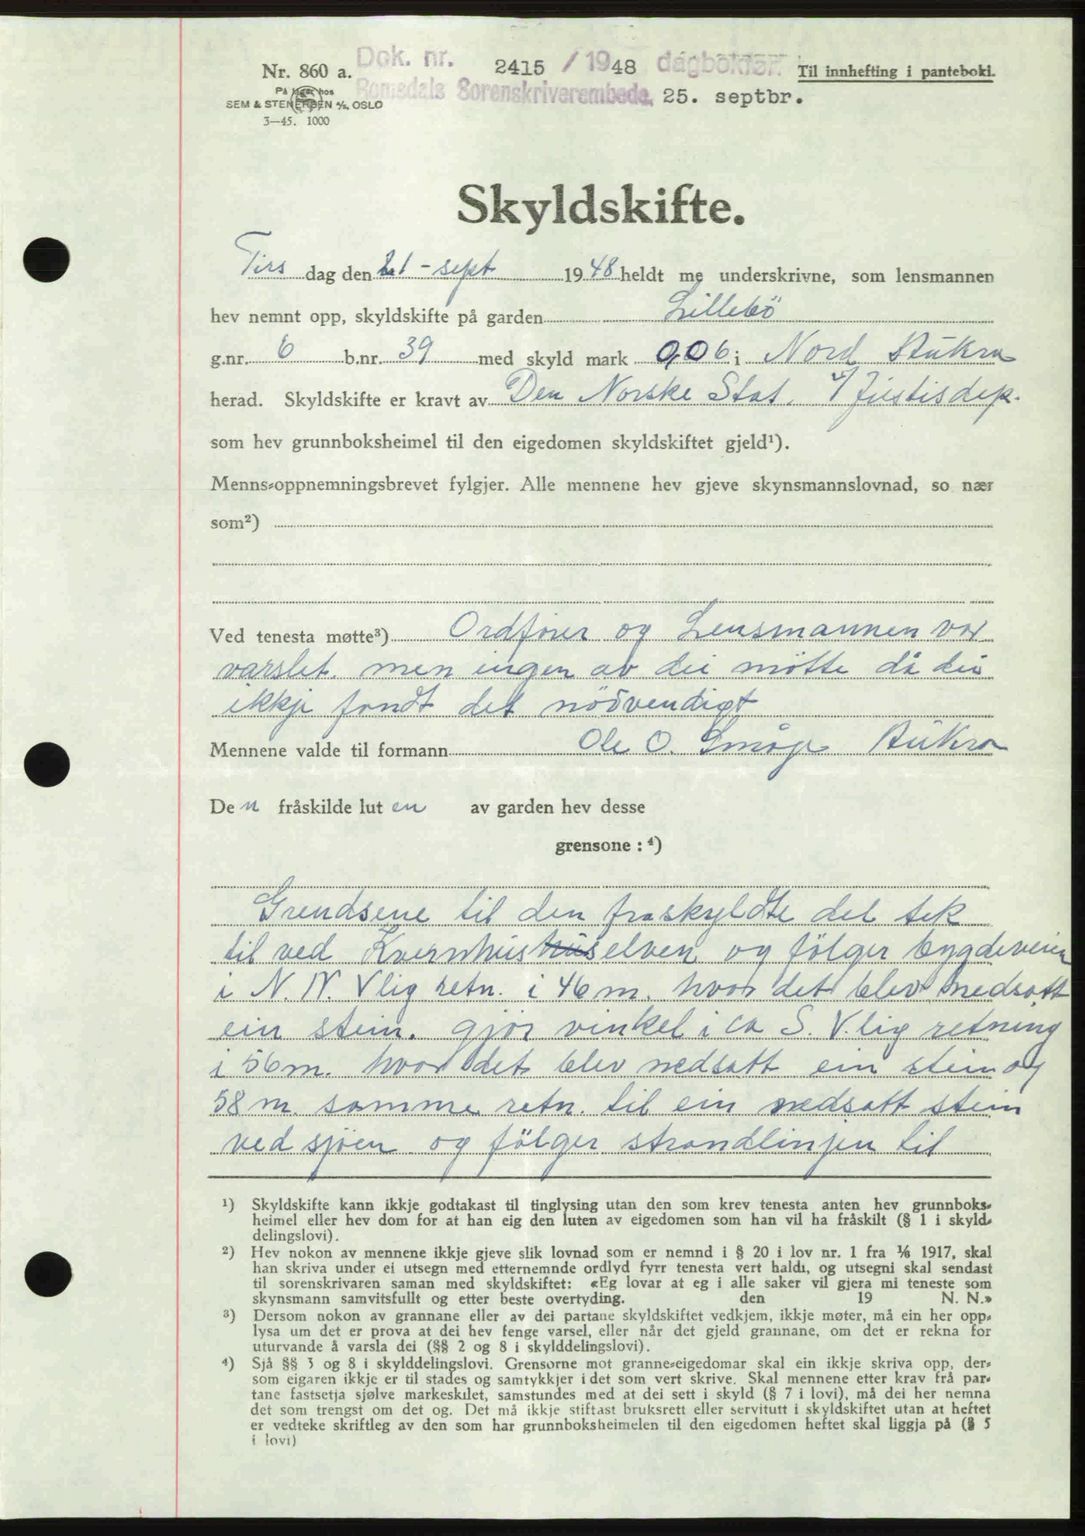 Nr. 860 a.
Dok. nr. 2415 / 1948 dagbokfør.
Til innhefting i panteboki.
På lager hos
SEM & STENERSEN A/S, OSLO
Romsdals Sorenskriverembede, 25. septbr.
3—45. 1000
Skyldskifte.
Tirs dag den 21 - sept 1948 heldt me underskrivne, som lensmannen
hev nemnt opp, skyldskifte på garden Lillebö
g.nr. 6 b.nr. 39 med skyld mark 0,06 i Nord Aukra
herad. Skyldskifte er kravt av Den Norske Stat. v/ Justisdep.
som hev grunnboksheimel til den eigedomen skyldskiftet gjeld¹).
Menns⸗oppnemningsbrevet fylgjer. Alle mennene hev gjeve skynsmannslovnad, so nær
som²)
Ved tenesta møtte³) Ordförer og Lensmannen var
varslet. men ingen av dei mötte då dei
ikkje fandt det nödvendigt
Mennene valde til formann Ole O. Småge Aukra
De n fråskilde lut en av garden hev desse
grensone : ⁴)
Grendsene til den fraskyldte del tek
til ved Kvernhuselven og fölger bygdeveien
i N. N. Vlig retn. i 46 m. hvor det blev nedsatt
ein stein. gjör vinkel i ca S. V.lig retning
i 56 m. hvor det blev nedsatt ein stein og
58 m. samme retn. til ein nedsatt stein
ved sjöen og fölger strandlinjen til
¹) Skyldskifte kann ikkje godtakast til tinglysing utan den som krev tenesta anten hev grunnboks⸗
heimel eller hev dom for at han eig den luten av eigedomen som han vil ha fråskilt (§ 1 i skyld⸗
delingslovi).
²) Hev nokon av mennene ikkje gjeve slik lovnad som er nemnd i § 20 i lov nr. 1 fra ¹/₆ 1917, skal
han skriva under ei utsegn med etternemnde ordlyd fyrr tenesta vert haldi, og utsegni skal sendast
til sorenskrivaren saman med skyldskiftet: «Eg lovar at eg i alle saker vil gjera mi teneste som
skynsmann samvitsfullt og etter beste overtyding. den 19 N. N.»
³) Dersom nokon av grannane eller av dei partane skyldskiftet vedkjem, ikkje møter, må ein her opp⸗
lysa um det er prova at dei hev fenge varsel, eller når det gjeld grannane, om det er rekna for
uturvande å varsla dei (§§ 2 og 8 i skylddelingslovi).
⁴) Sjå §§ 3 og 8 i skylddelingslovi. Grensorne mot granne⸗eigedomar skal ein ikkje skriva opp, der⸗
som eigaren ikkje er til stades og samtykkjer i det som vert skrive. Skal mennene etter krav frå par⸗
tane fastsetja sjølve markeskilet, samstundes med at dei sett i skyld (§ 7 i lovi), må dei her nemna
det som trengst om det og. Det må ikkje stiftast bruksrett eller servitutt i skyldskiftet utan at heftet
er vedteke skriftleg av den som har grunnboksheimelen til den eigedomen heftet skal liggja på (§ 5
i lovi)